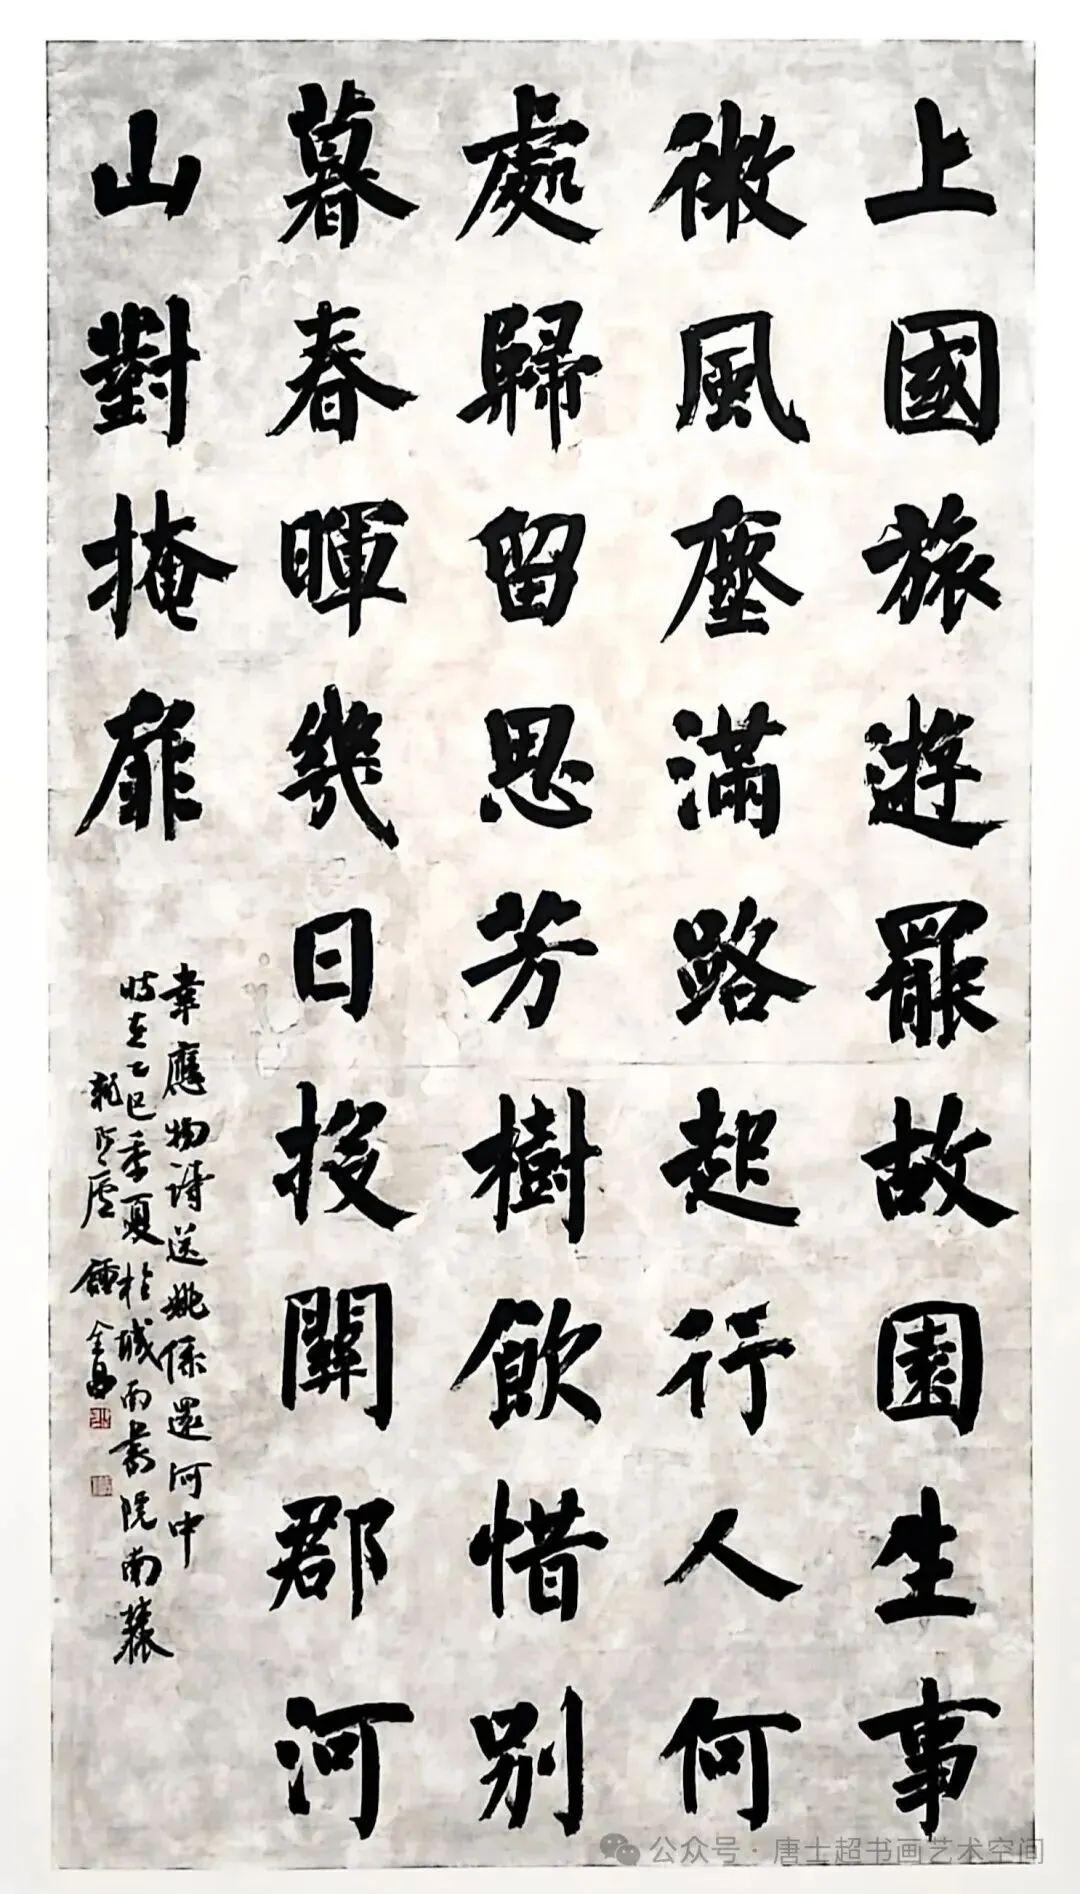 上國旅遊罷故園生事
微風塵滿路起行人何
處歸留思芳樹飲惜別
暮春暉幾日投關郡河
山對掩扉
韋應物詩送姚係還河中
時在乙巳季夏於城書院南
廬
公众号·唐士超书画艺术空间